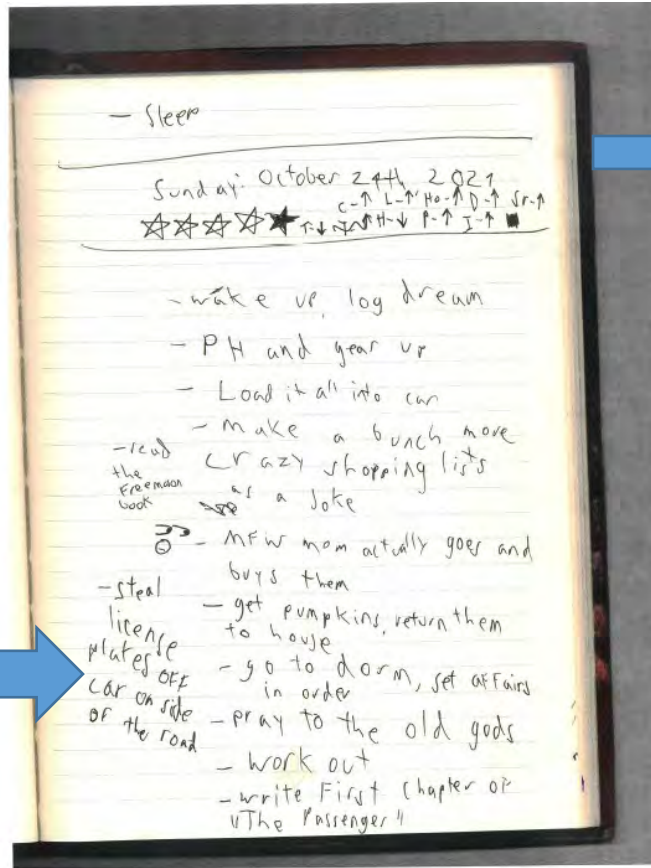 - Sleep
Sunday: October 24th 2021
C-↑ L-↑ Ho-↑ D-↑ Sr-↑
T-↓ H-↓ P-↑ I-↑
- wake up, log dream
- PH and gear up
- Load it all into car
- make a bunch more
crazy shopping lists
as a joke
- read
the
Freemason
book
- MFW mom actually goes and
buys them
- get pumpkins, return them
to house
- steal
license
plates OFF
car on side
of the road
- go to dorm, set affairs
in order
- pray to the old gods
- work out
- write First Chapter of
"The Passenger"